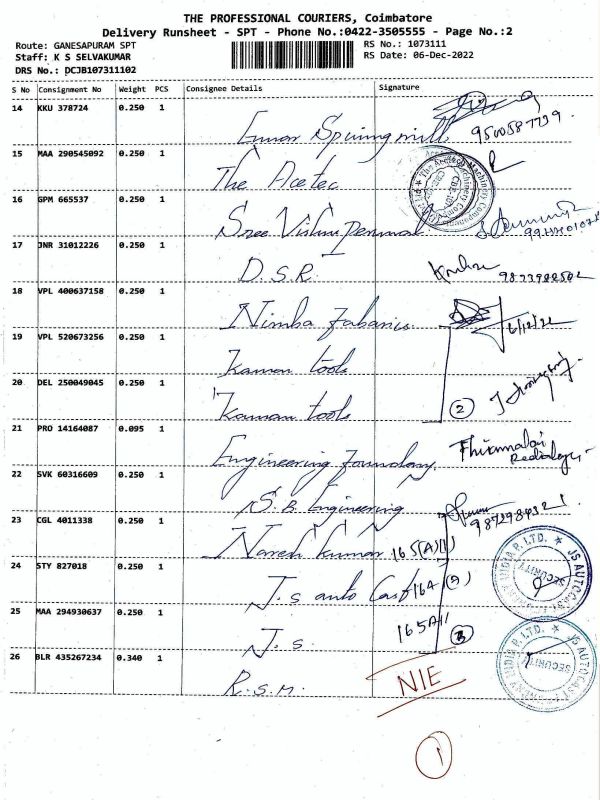 THE PROFESSIONAL COURIERS, Coimbatore
Delivery Runsheet - SPT - Phone No.:0422-3505555 - Page No.:2
Route: GANESAPURAM SPT
RS No.: 1073111
Staff: K S SELVAKUMAR
RS Date: 06-Dec-2022
DRS No.: DCJB107311102
S No Consignment No Weight PCS Consignee Details Signature
14 KKU 378724 0.250 1 Spining mill
9500587739
15 MAA 290545092 0.250 1 The Acetec
16 GPM 665537 0.250 1 Sree Vishnu Perumal
17 JNR 31012226 0.250 1 D.S.R.
18 VPL 400637158 0.250 1 Nimba Fabanics
6/12/22
19 VPL 520673256 0.250 1 Kaman tools
20 DEL 250049045 0.250 1 Kaman tools
2
21 PRO 14164087 0.095 1 Engineering Foundary
Thirumalai
22 SVK 60316609 0.250 1 S.B. Engineering
23 CGL 4011338 0.250 1 Naresh Kumar 165(A)(1)
24 STY 827018 0.250 1 J.s auto Cast 164 (2)
JS AUTOCAST INDIA P. LTD.
SECURITY
25 MAA 294930637 0.250 1 J.s. 165A11
3
JS AUTOCAST INDIA P. LTD.
SECURITY
26 BLR 435267234 0.340 1 R.S.M.
NIE
1